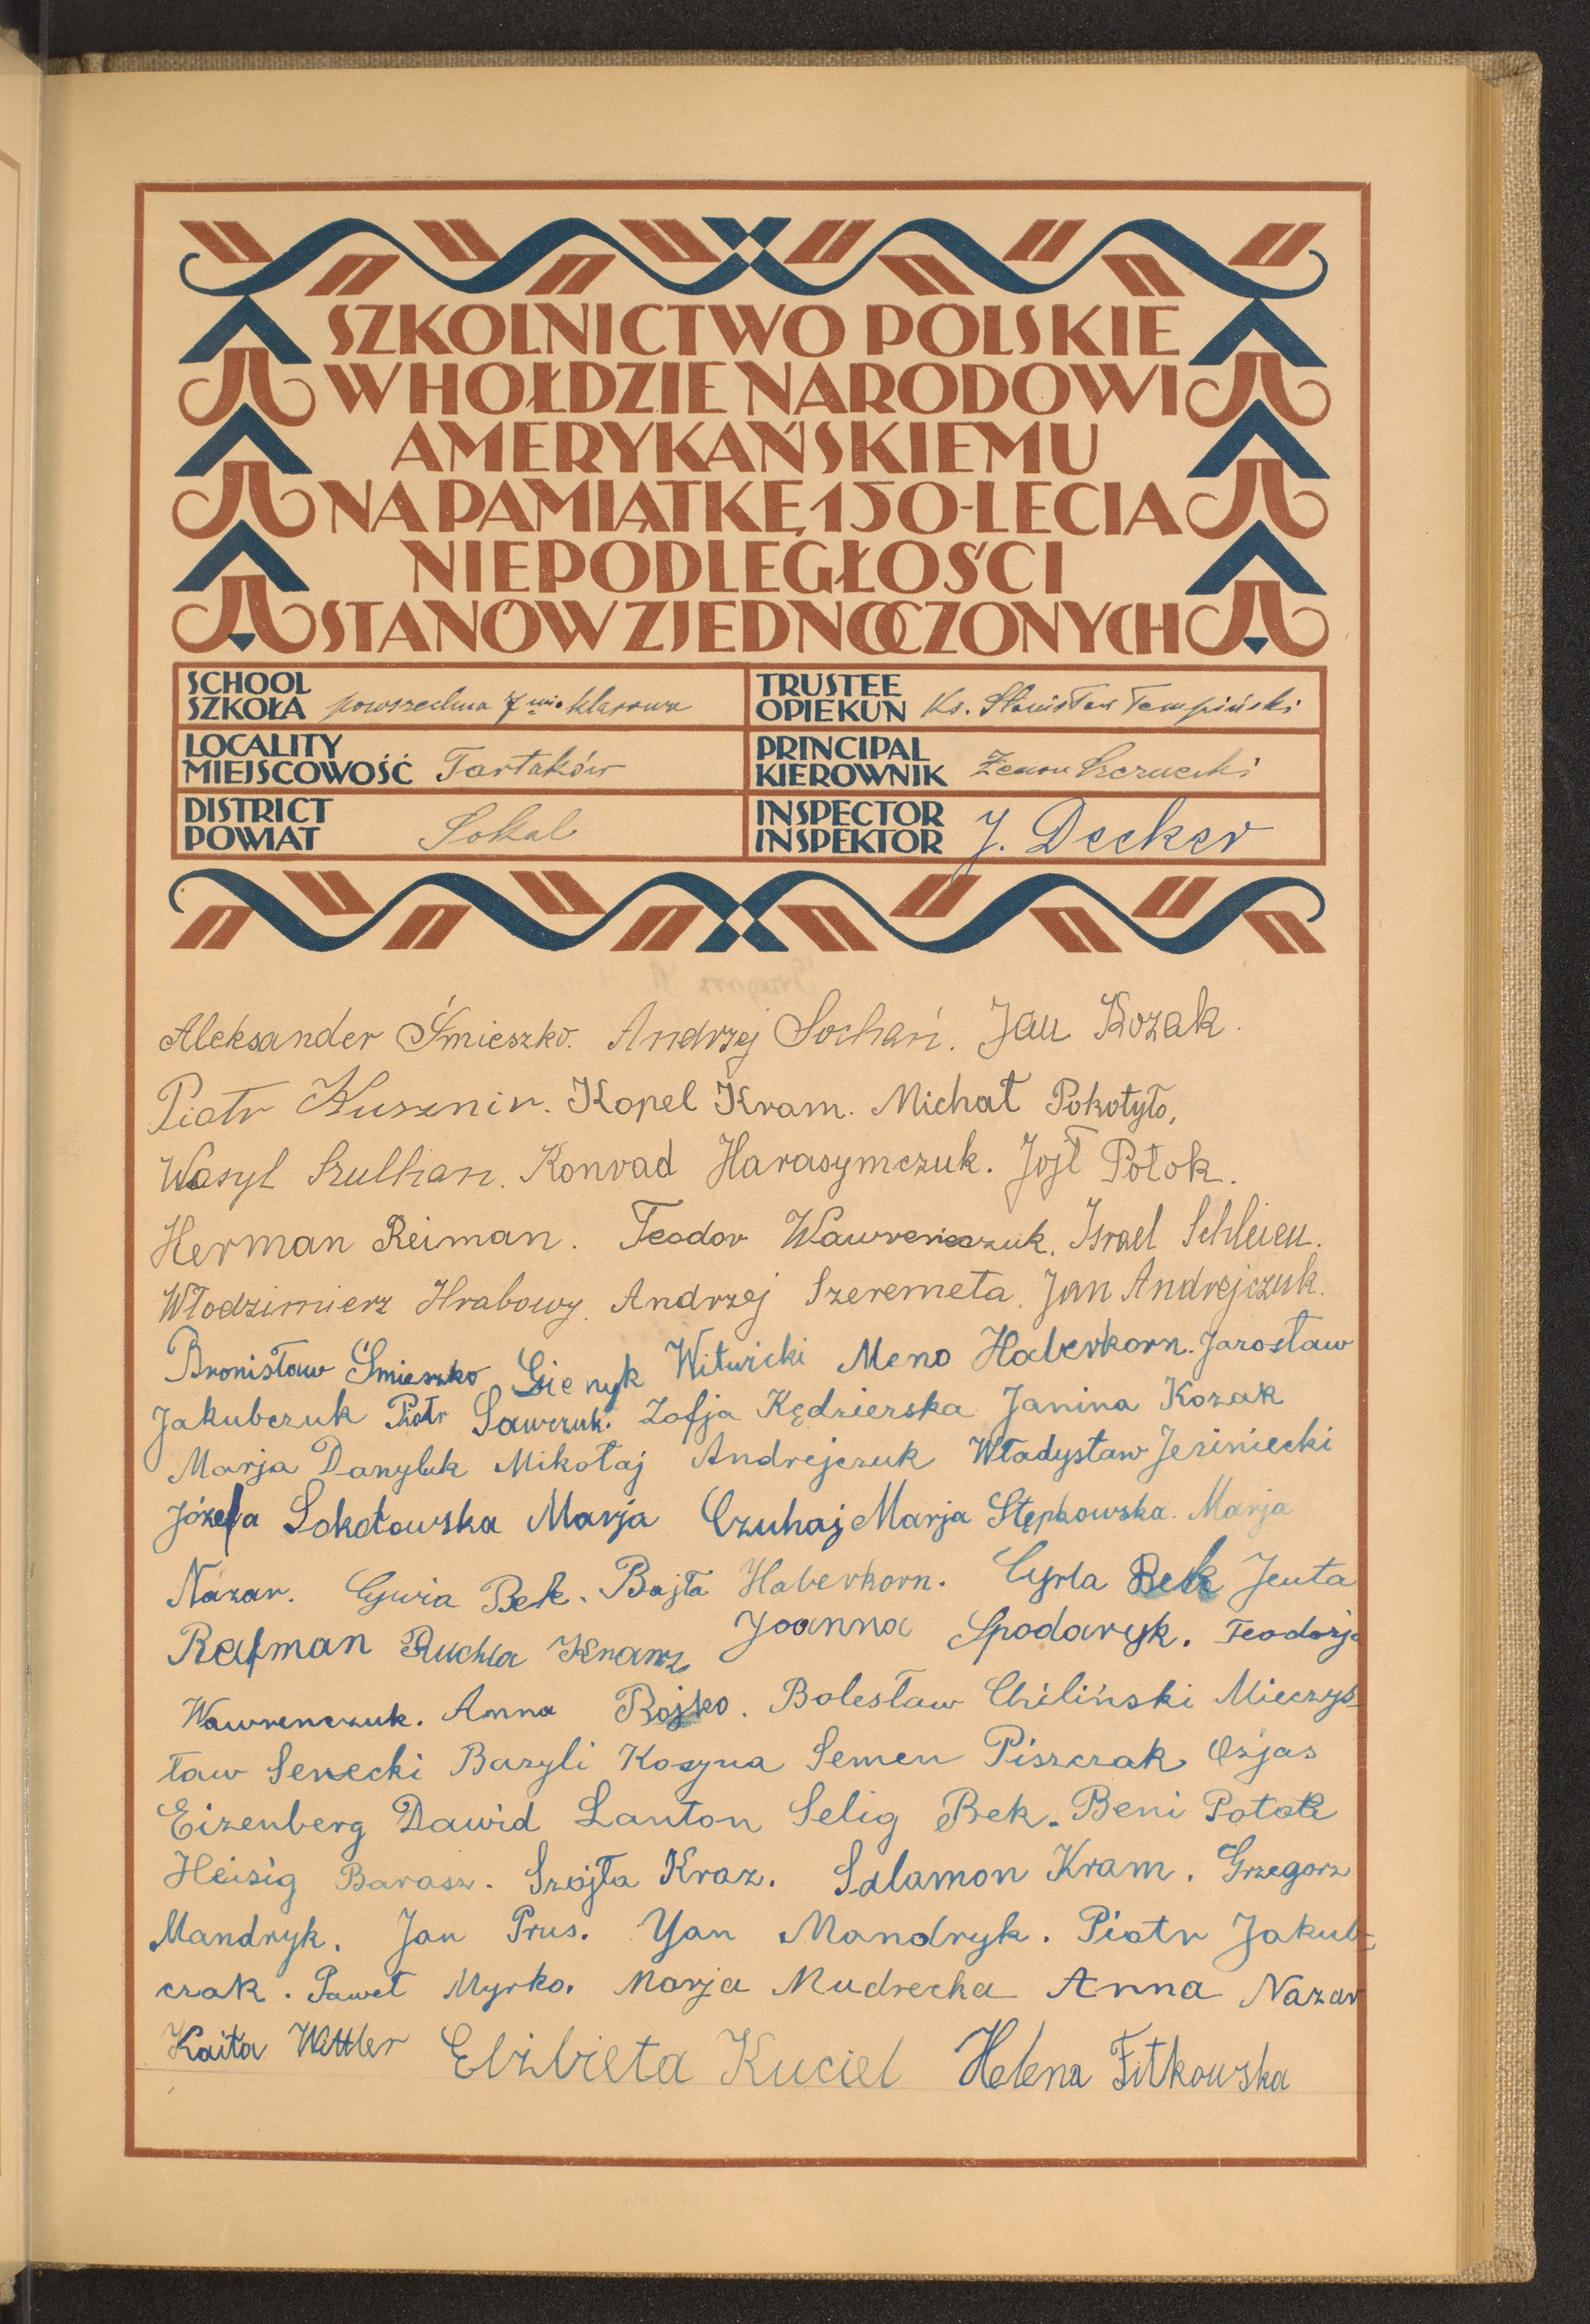 SZKOLNICTWO POLSKIE
W HOŁDZIE NARODOWI
AMERYKAŃSKIEMU
NA PAMIĄTKĘ 150-LECIA
NIEPODLEGŁOŚCI
STANÓW ZJEDNOCZONYCH
SCHOOL
SZKOŁA powszechna 7mio klasowa
TRUSTEE
OPIEKUN Ks. Stanisław Tempiński
LOCALITY
MIEJSCOWOŚĆ Tartaków
PRINCIPAL
KIEROWNIK Zenon
DISTRICT
POWIAT Sokal
INSPECTOR
INSPEKTOR J. Decker
Aleksander Śmieszko. Andrzej Sochań. Jan Kozak.
Piotr Kusznir. Kopel Kram. Michał Pokotyło,
Wasyl Szulhan. Konrad Harasymczuk. Jojł Potok.
Herman Reiman. Teodor Wawrenczuk. Israel Schleien.
Włodzimierz Hrabowy. Andrzej Szeremeta. Jan Andrejczuk.
Bronisław Śmieszko Gienyk Wituicki Meno Haberkorn. Jarosław
Jakubczuk Piotr Sawczuk. Zofja Kędzierska Janina Kozak
Marja Danyluk Mikołaj Andrejczuk Władysław Jeziniecki
Józefa Sokołowska Marja Czuhaj Marja Stępkowska. Marja
Nazar. Cywia Bek. Bajła Haberkorn. Cyrla Bek Jenta
Rajman Ruchla Knarz Joanna Spodaryk. Teodozja
Wawrenczuk. Anna Bojko. Bolesław Chiliński Mieczys-
ław Senecki Bazyli Kosyna Semen Piszczak Ozjas
Eizenberg Dawid Lanton Selig Bek. Beni Potok
Heisig Barasz. Szojła Kraz. Salamon Kram. Grzegorz
Mandryk. Jan Prus. Yan Mandryk. Piotr Jakub-
czak. Paweł Myrko. Marja Mudrecka Anna Nazar
Kaita Wittler Elżbieta Kuciel Helena Fitkowska